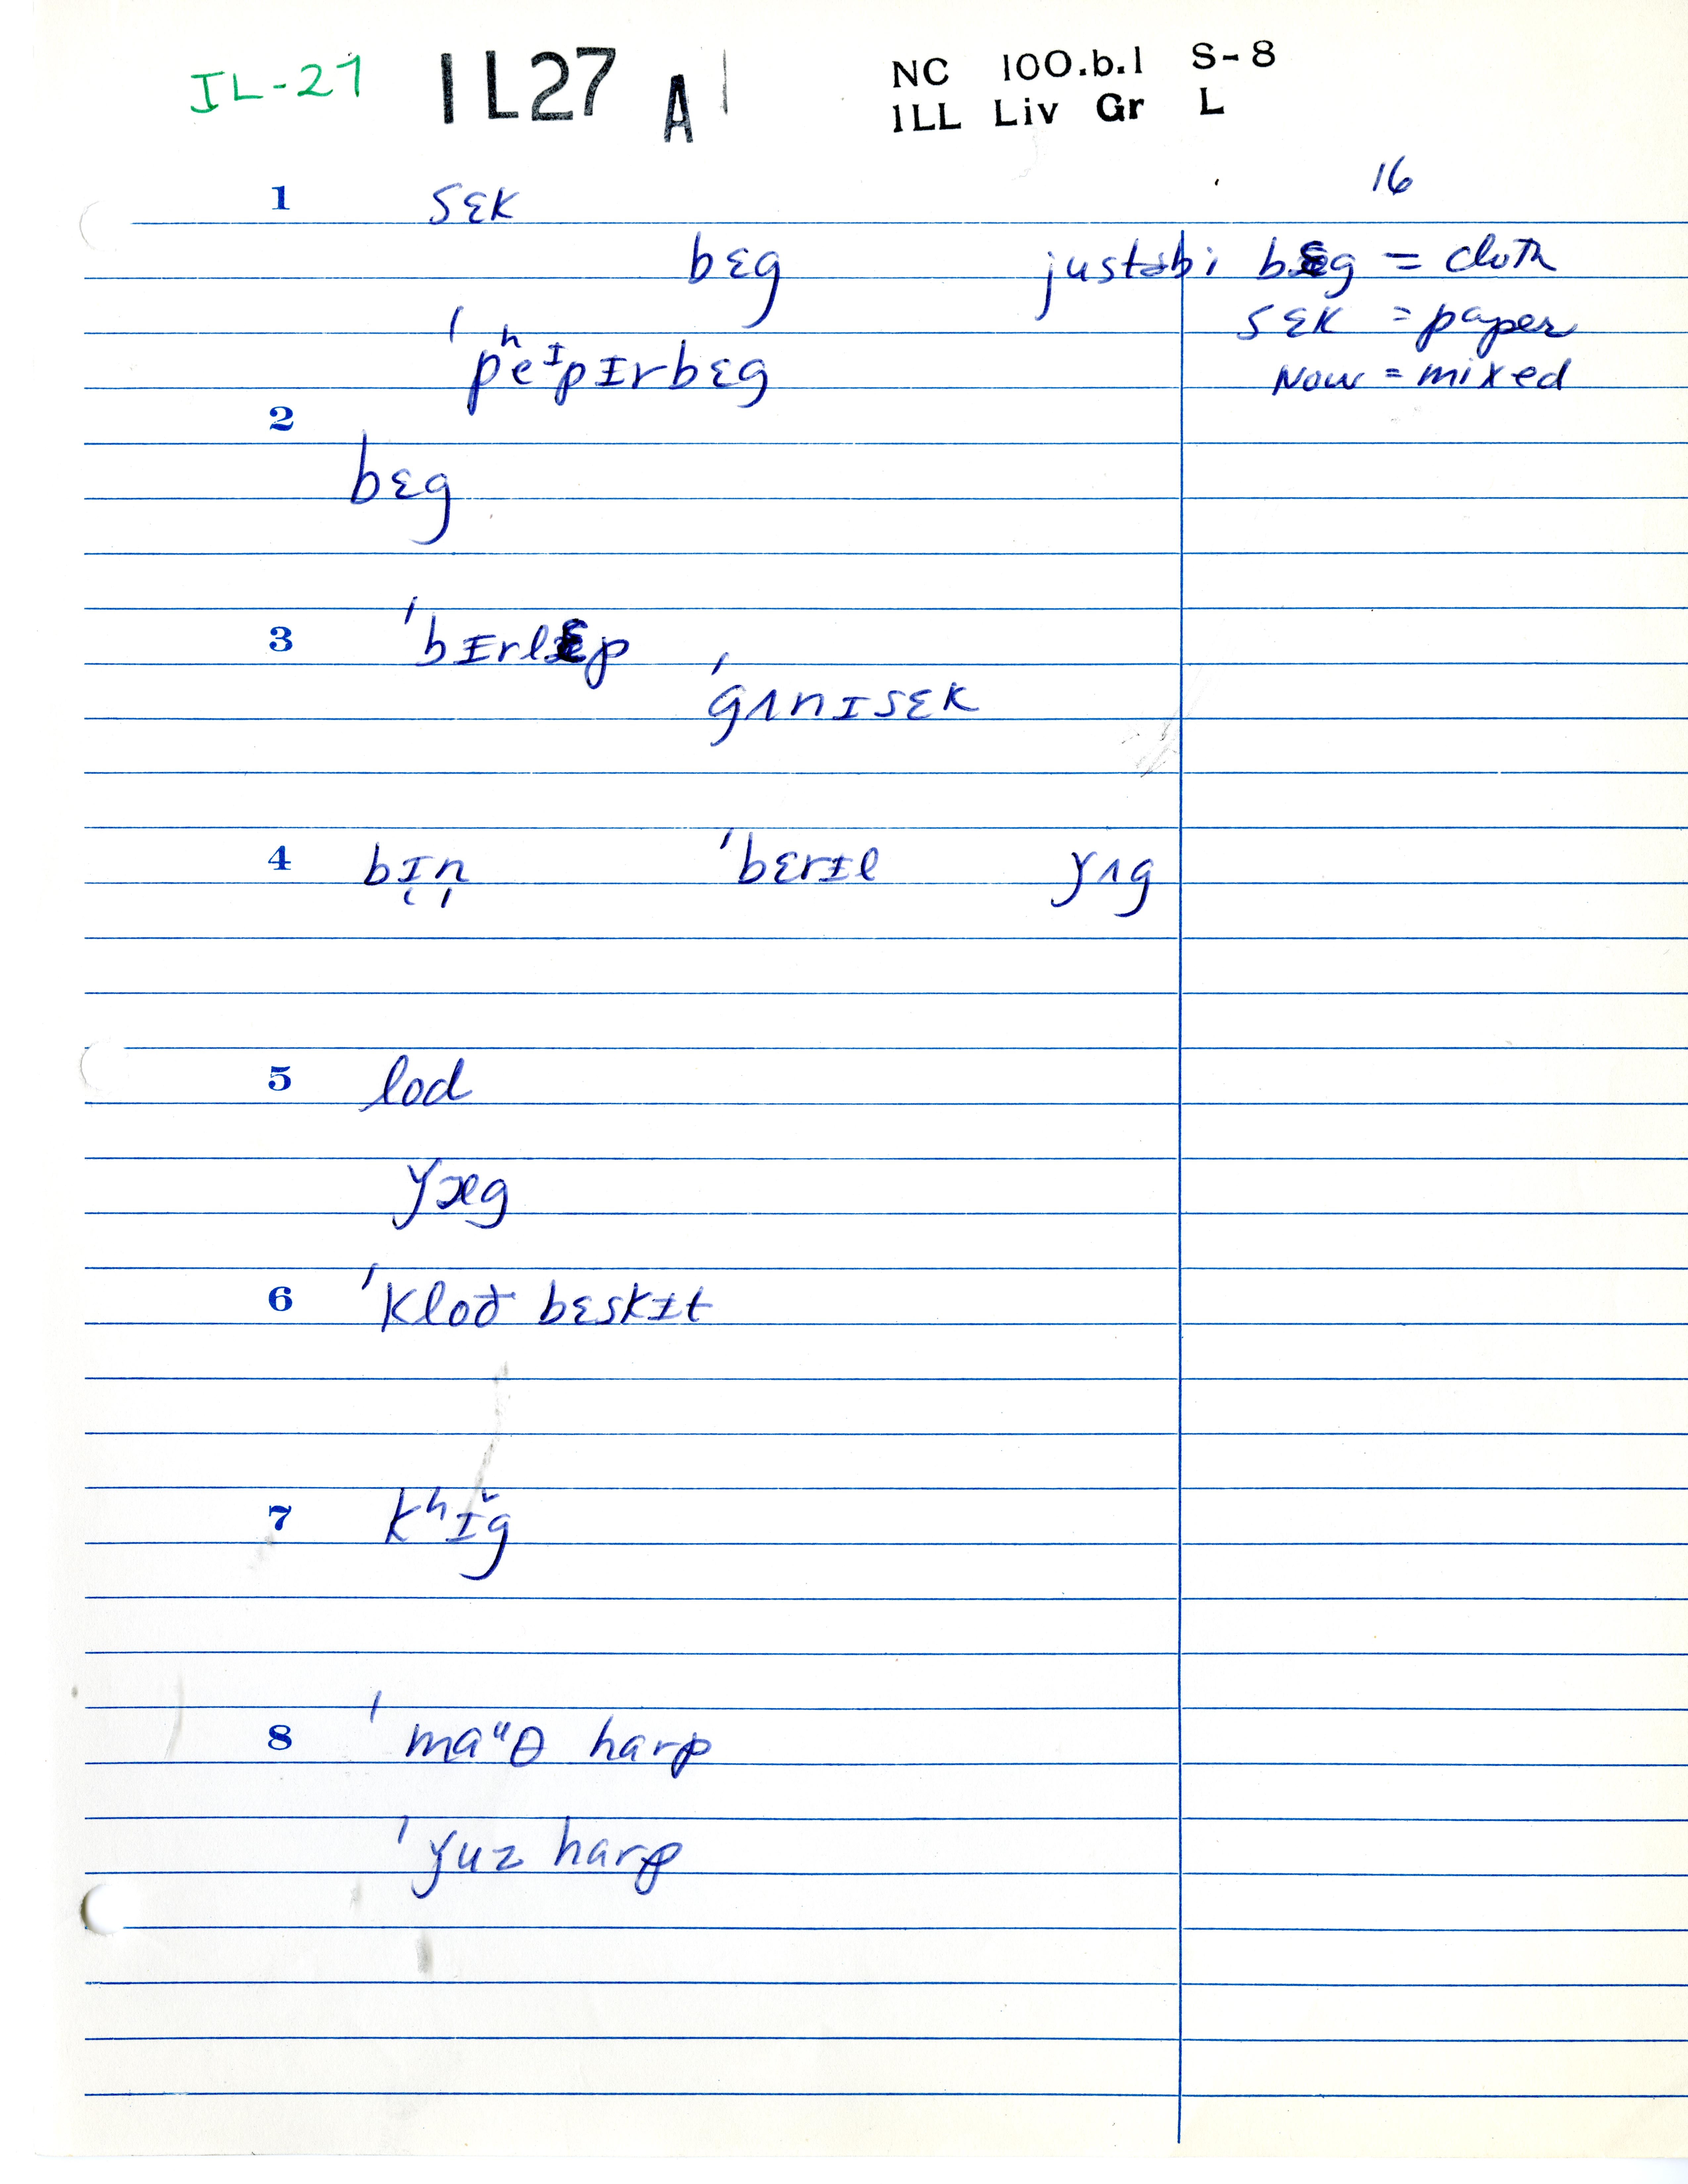 IL-27 IL27 A NC 100.b.1 S-8
ILL Liv Gr L
16
1 sɛk
bɛg justəbi bɛg = cloth
sɛk = paper
ˈpʰeᶦpɪrbɛg
Now = mixed
2
bɛg
3 ˈbɪrlɛp
ˈgʌnɪsɛk
4 bɪn ˈbɛrɪl ɣʌg
5 lod
ɣæg
6 ˈkloð bɛskɪt
7 kʰɪ̌g
8 ˈmaᵘθ harp
ˈɣuz harp